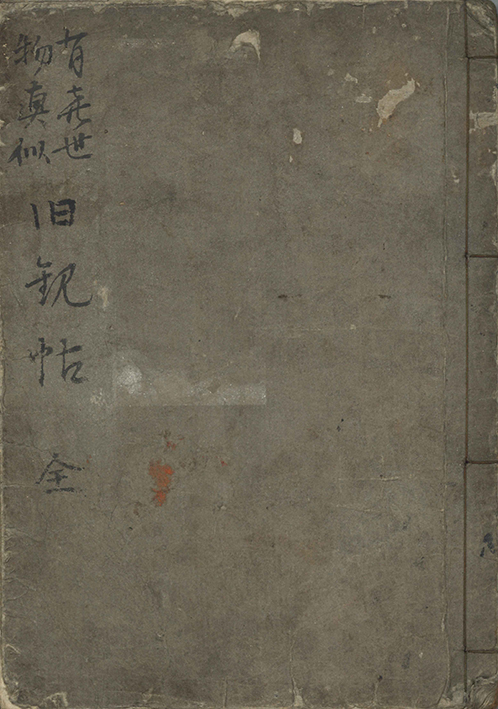 有喜世
物真似
旧観帖 全